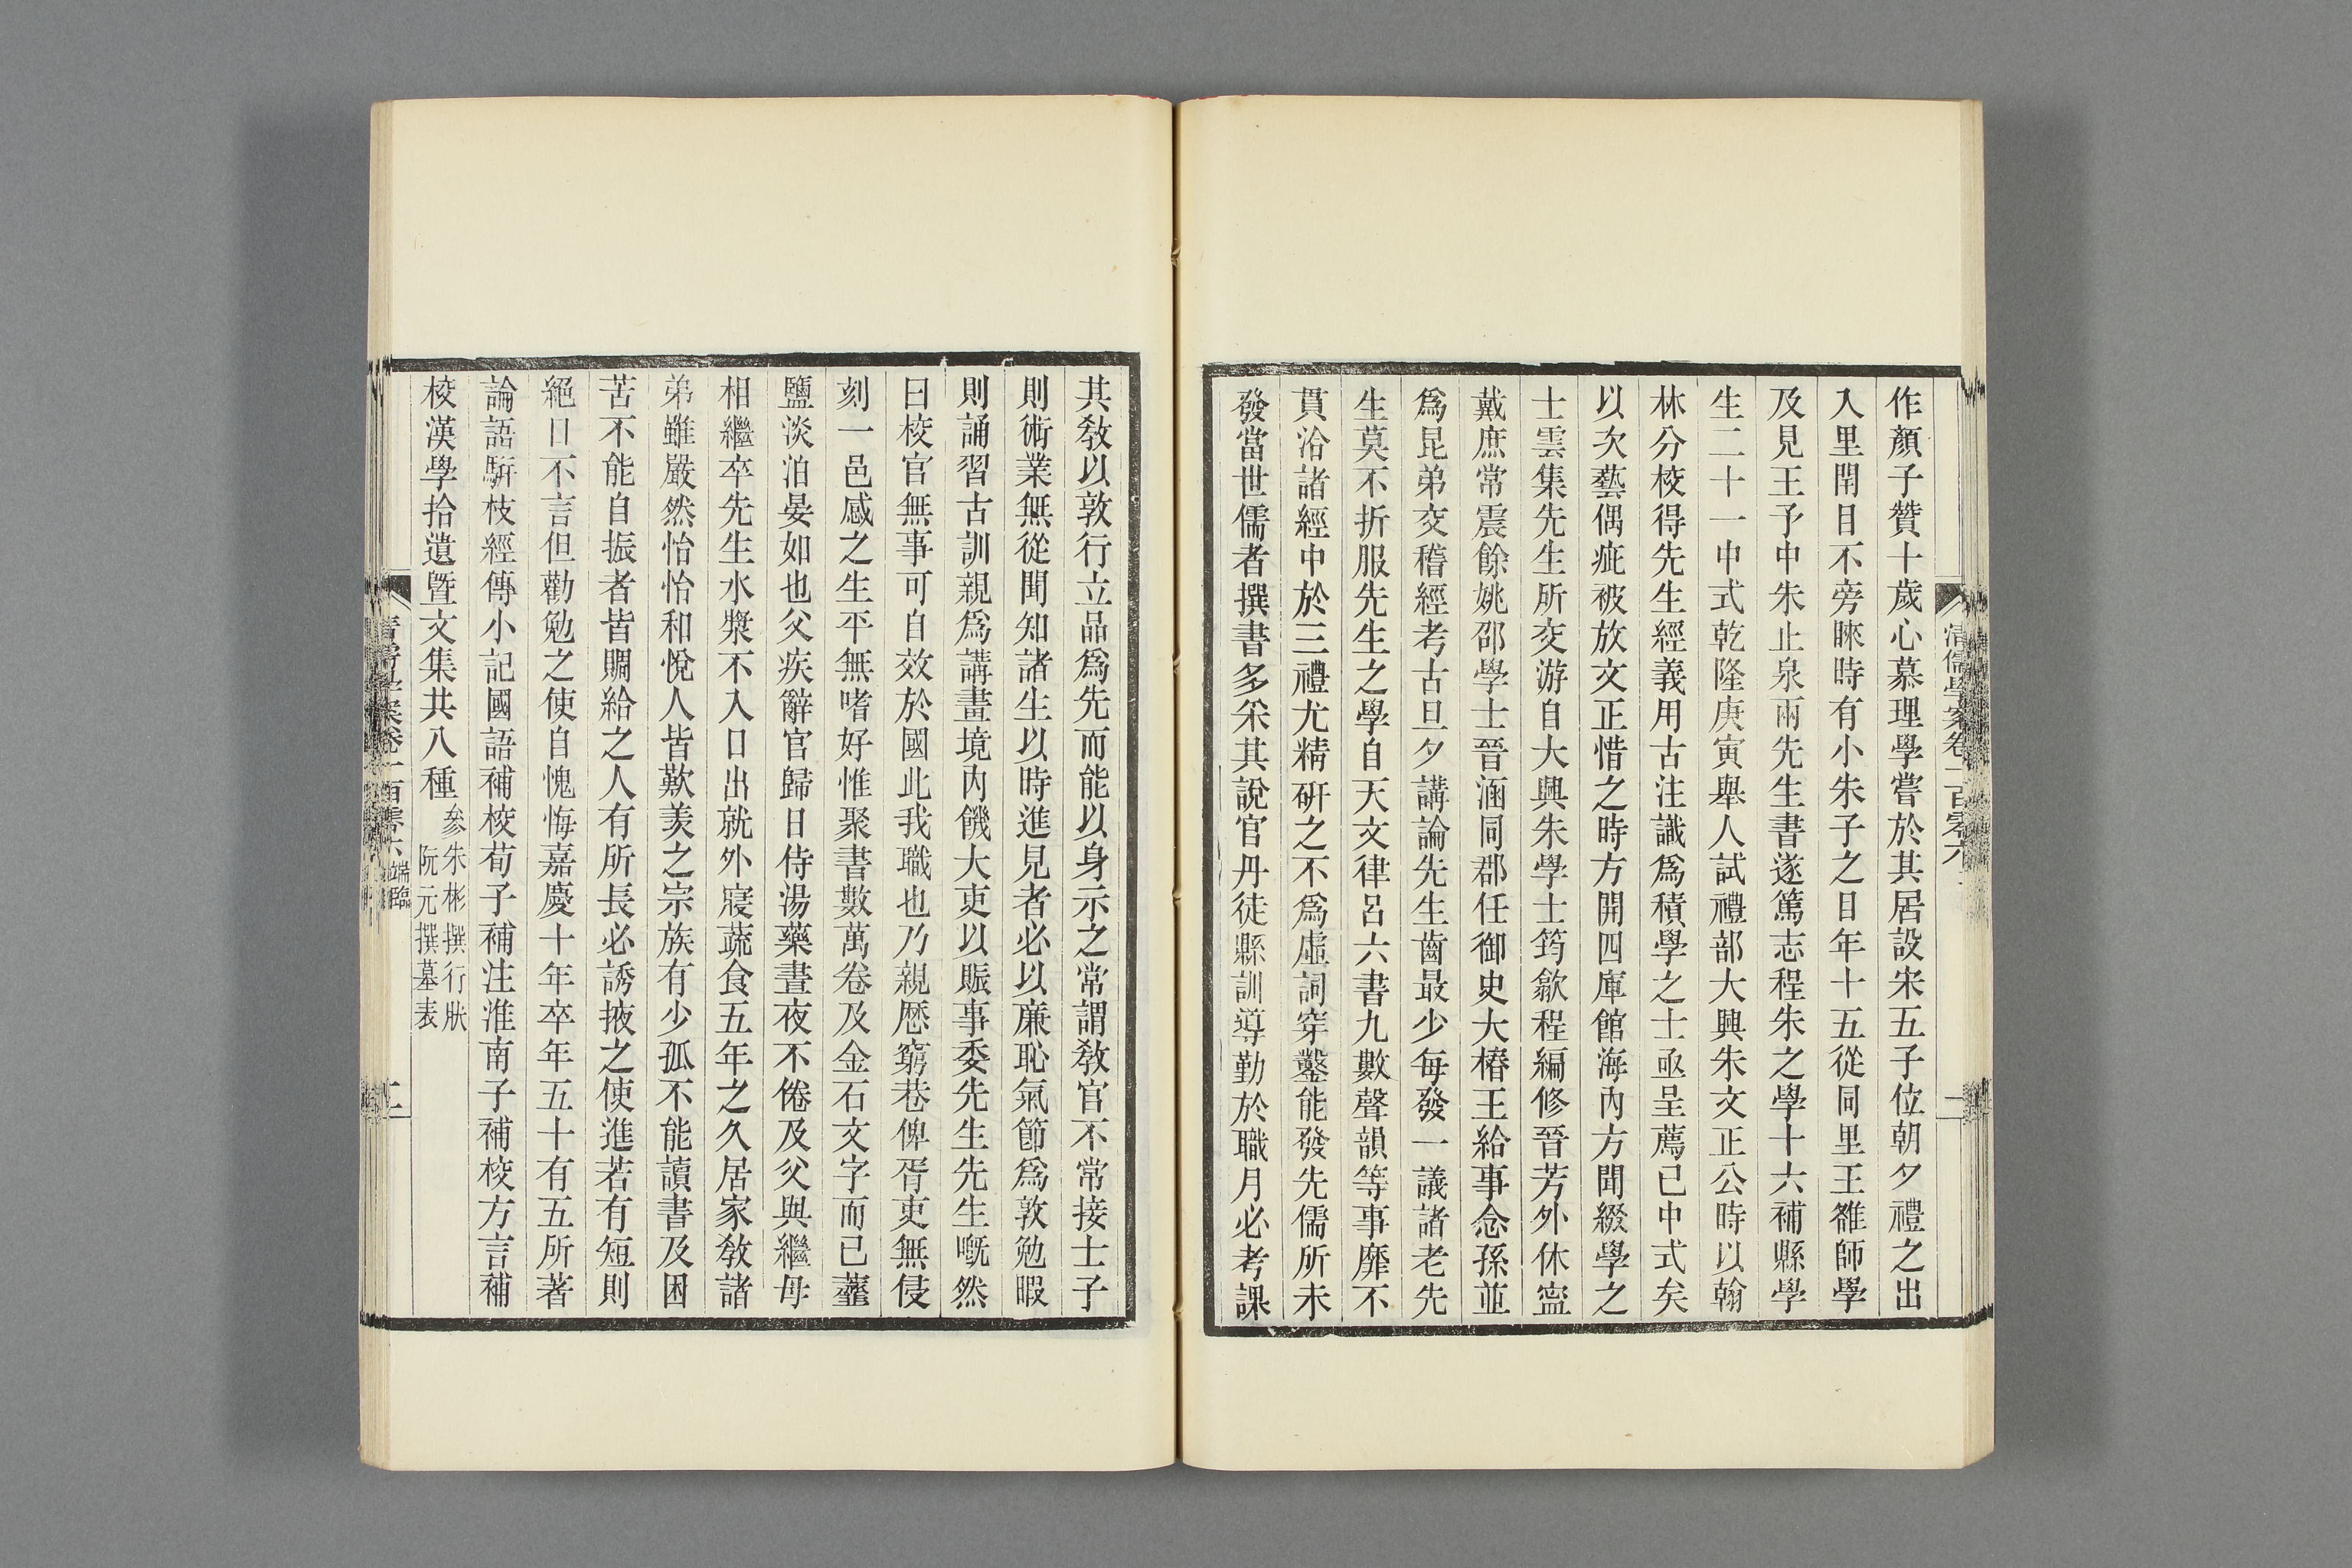 作顏子贊十歲心慕理學嘗於其居設宋五子位朝夕禮之出
入里閈目不旁睞時有小朱子之目年十五從同里王雒師學
及見王予中朱止泉兩先生書遂篤志程朱之學十六補縣學
生二十一中式乾隆庚寅舉人試禮部大興朱文正公時以翰
林分校得先生經義用古注識爲積學之士亟呈薦已中式矣
以次藝偶疵被放文正惜之時方開四庫館海內方聞綴學之
士雲集先生所交游自大興朱學士筠歙程編修晉芳外休寧
戴庶常震餘姚邵學士晉涵同郡任御史大椿王給事念孫並
爲昆弟交稽經考古旦夕講論先生齒最少每發一議諸老先
生莫不折服先生之學自天文律呂六書九數聲韻等事靡不
貫洽諸經中於三禮尤精研之不爲虛詞穿鑿能發先儒所未
發當世儒者撰書多采其說官丹徒縣訓導勤於職月必考課
清儒學案卷一百零六
二
其敎以敦行立品爲先而能以身示之常謂敎官不常接士子
則術業無從聞知諸生以時進見者必以廉恥氣節爲敦勉暇
則誦習古訓親爲講畫境內饑大吏以賑事委先生先生嘅然
曰校官無事可自效於國此我職也乃親歷窮巷俾胥吏無侵
刻一邑感之生平無嗜好惟聚書數萬卷及金石文字而已虀
鹽淡泊晏如也父疾辭官歸日侍湯藥晝夜不倦及父與繼母
相繼卒先生水漿不入口出就外寢蔬食五年之久居家敎諸
弟雖嚴然怡怡和悅人皆歎羨之宗族有少孤不能讀書及困
苦不能自振者皆賙給之人有所長必誘掖之使進若有短則
絕口不言但勸勉之使自愧悔嘉慶十年卒年五十有五所著
論語騈枝經傳小記國語補校荀子補注淮南子補校方言補
校漢學拾遺曁文集共八種
參朱彬撰行狀
阮元撰墓表
清儒學案卷一百零六
端臨
二